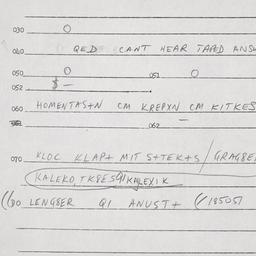 030 O
040 QED CANT HEAR TAPED ANSW
050 O 051 O
052 $ -
060 HOMENTASTN CM KREPXN CM KITKES
062 -
070 KLOC KLAP+ MIT S+TEK+S / GRAGBE
KALEKO, TKBES
LENGBER QI ANUST+ (/185051